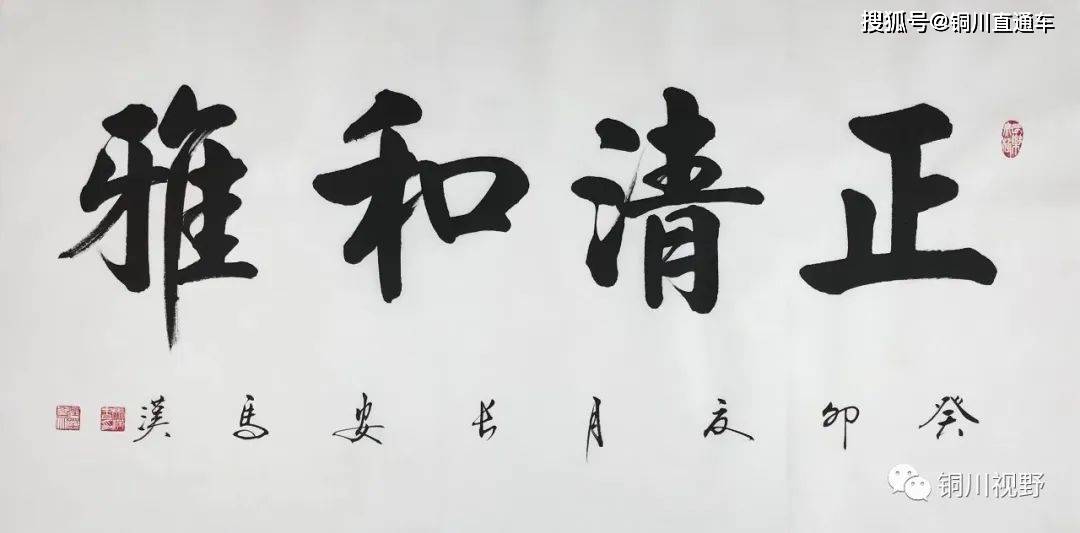 搜狐号@铜川直通车
正清和雅
癸卯夏月长安马漢
铜川视野